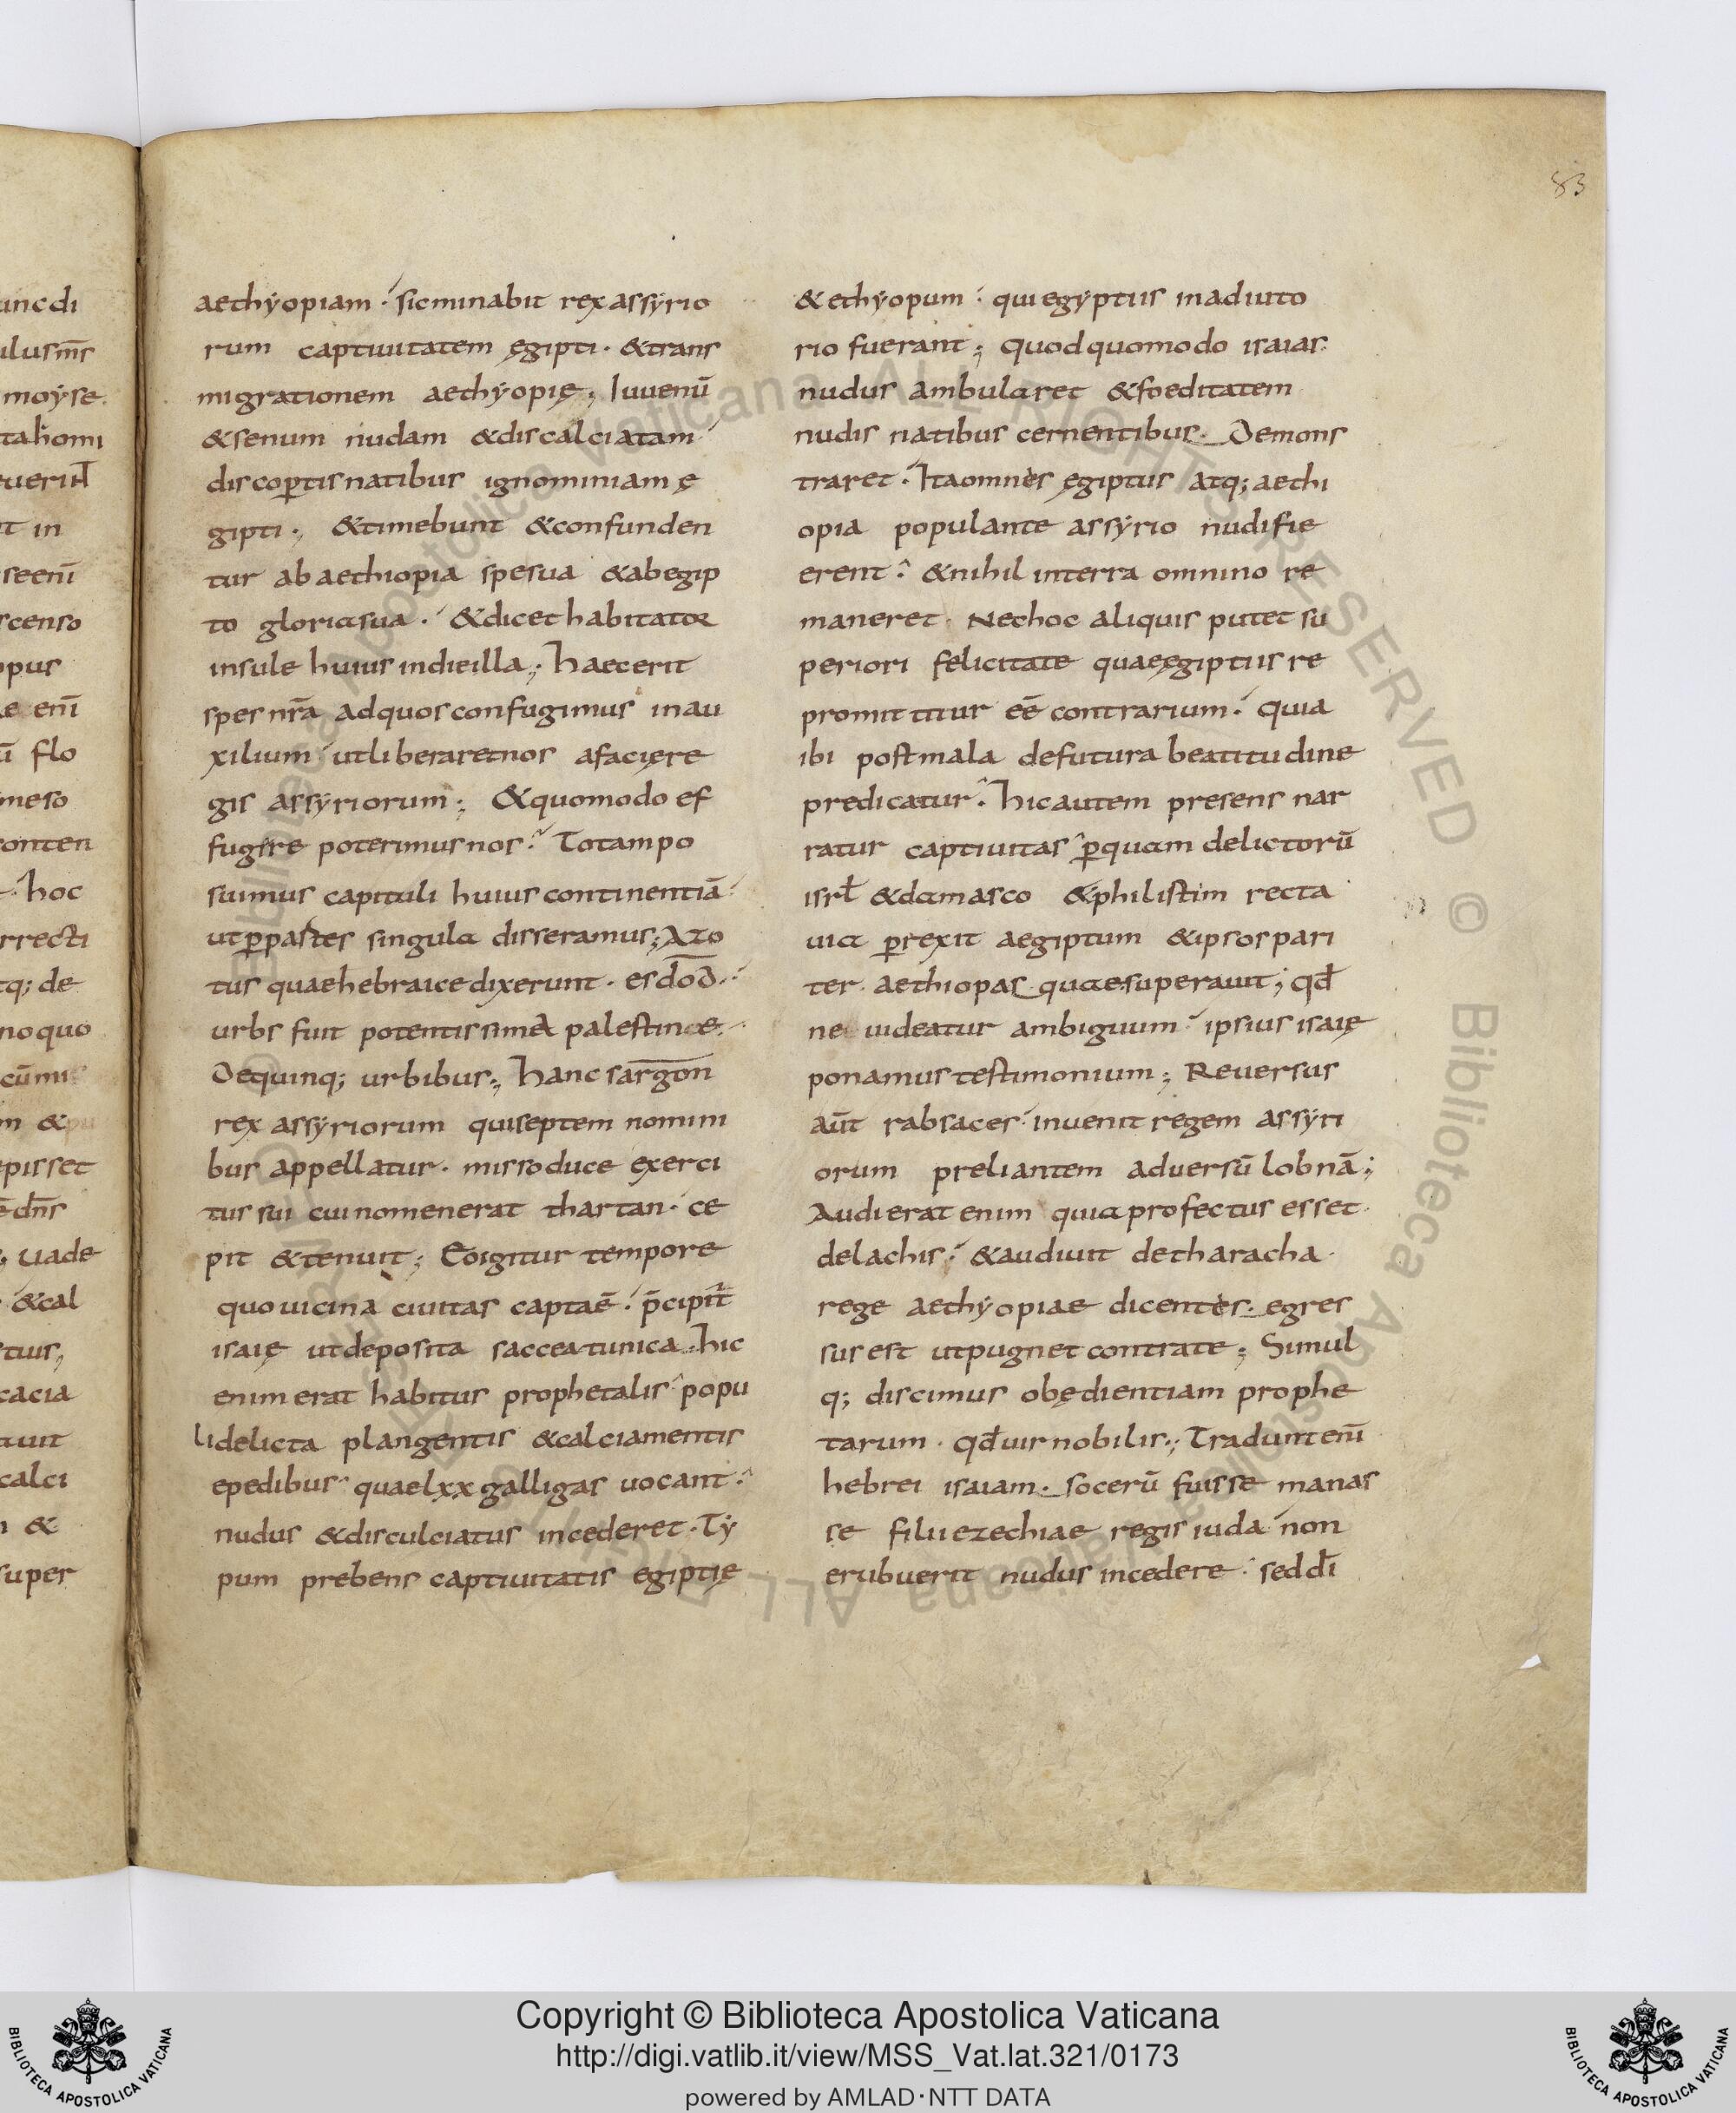 83
unc di
ulus m̅s
moyse
tahomi
uerit
t in
se eni̅
scenso
opus
e eni̅
u̅ flo
meso
onten
hoc
rrecti
tq; de
no quo
cu̅mi
m &
episset
dn̅s
uade
&cal
tuus,
cacia
auit
calci
&
super
aethyopiam. sicminabit rex assyrio
rum captiuitatem ęgipti. &trans
migrationem aethyopię; Iuuenu̅
&senum nudam &discalciatam
discop̱tis natibus ignominiam ę
gipti., &timebunt &confunden
tur ab aethiopia spe sua &abegip
to gloria sua. &dicet habitator
insule huius indieilla; haecerit
spes nr̅a adquos confugimus inau
xilium utliberaretnos afacię re
gis assyriorum; &quomodo ef
fugire poterimus nos? Totam po
suimus capituli huius continentia̅
utp̱ partes singula disseramus; Azo
tus quae hebraice dixerunt. esdo̅d.
urbs fuit potentissima palestinae.
De quinq; urbibus; hanc sargo̅n
rex assyriorum qui septem nomini
bus appellatur. misso duce exerci
tus sui cui nomen erat thartan. ce
pit &tenuit; Eo igitur tempore
quo uicina ciuitas capta e̅. p̅cipit̅
isaię utdeposita saccea tunica. hic
enim erat habitus prophetalis popu
li delicta plangentis &calciamentis
epedibus quae lxx galligas uocant.
nudus &disculciatus incederet. Ty
pum prebens captiuitatis egiptię
&ethyopum. qui egyptiis inadiuto
rio fuerant; quod quomodo isaias
nudus ambularet &foeditatem
nudis natibus cernentibus. Demons
traret. Ita omnes ęgiptus atq; aethi
opia populante assyrio nudifie
erent. &nihil interra omnino re
maneret. Nechoc aliquis putet su
periori felicitate quae ęgiptiis re
promittitur ee̅ contrarium. quia
ibi post mala defutura beatitudine
predicatur. hic autem presens nar
ratur captiuitas p̱quam delictoru̅
isrl̅ &damasco &philistim recta
uia p̱rexit aegiptum &ipsos pari
ter aethiopas quae superauit; qd̅
ne uideatur ambiguum ipsius isaię
ponamus testimonium; Reuersus
au̅t rabsaces inuenit regem assyri
orum preliantem aduersu̅ lobna̅;
Audierat enim quia profectus esset
delachis. &audiuit detharacha
rege aethyopiae dicentes. egres
sus est utpugnet contra te; Simul
q; discimus obędientiam prophe
tarum. qd̅ uir nobilis; Tradunt eni̅
hebrei isaiam. soceru̅ fuisse manas
se filii ezechiae regis iuda non
erubuerit nudus incedere. sed di̅
Copyright © Biblioteca Apostolica Vaticana
http://digi.vatlib.it/view/MSS_Vat.lat.321/0173
powered by AMLAD·NTT DATA
BIBLIOTECA APOSTOLICA VATICANA
BIBLIOTECA APOSTOLICA VATICANA
© Biblioteca Apostolica Vaticana ALL RIGHTS RESERVED © Biblioteca Apostolica Vaticana ALL RIGHTS RESERVED